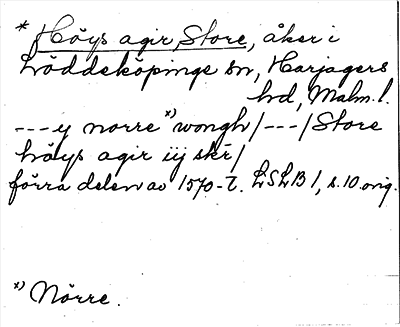 * Höys agir Store, åker i
Löddeköpinge sn, Harjagers
hd, Malm. l.
---y norre *) wongh/---/Store
höys agir iij skr/
förra delen av 1570-t. LSLB 1, s. 10 orig.
*) Nörre.